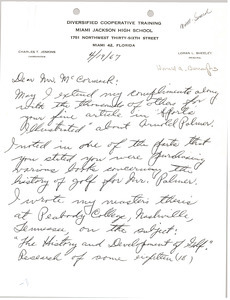 DIVERSIFIED COOPERATIVE TRAINING
MIAMI JACKSON HIGH SCHOOL
1751 NORTHWEST THIRTY-SIXTH STREET
MIAMI 42, FLORIDA
CHARLES T. JENKINS
4/19/67
Dear Mr. McCormack:
May I extend my compliments along
with the thousands of others for
your fine article in Sports
Illustrated about Arnold Palmer.
I noted in one of the parts that
you stated you were purchasing
various books concerning the
history of golf for Mr. Palmer.
I wrote my masters thesis
at Peabody College, Nashville,
Tennessee on the subject:
"The History and Development of Golf."
Research of some